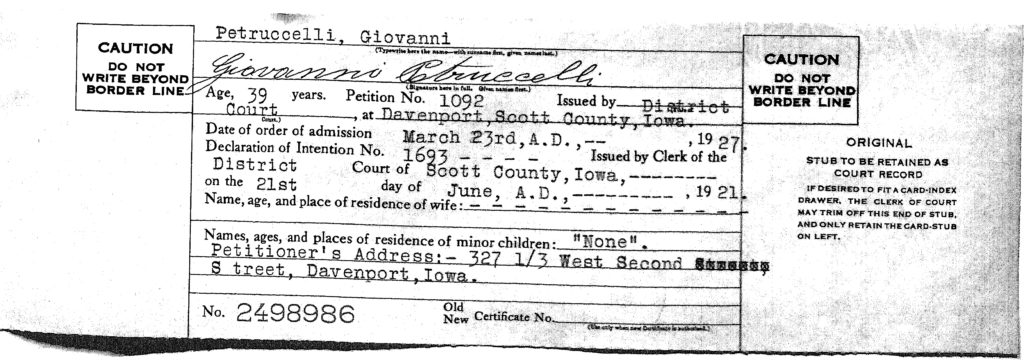 CAUTION
DO NOT
WRITE BEYOND
BORDER LINE
Petruccelli, Giovanni
(Typewrite here the name—with surname first, given names last.)
Giovanni Petruccelli
(Signature here in full. Given names first.)
Age, 39 years. Petition No. 1092 Issued by District
Court , at Davenport, Scott County, Iowa.
(Court.)
Date of order of admission March 23rd, A.D.,-- , 1927.
Declaration of Intention No. 1693 - - - - Issued by Clerk of the
District Court of Scott County, Iowa,--------
on the 21st day of June, A.D.,---------- , 1921.
Name, age, and place of residence of wife: - - - - - - - - - - - - - -
Names, ages, and places of residence of minor children: "None".
Petitioner's Address:- 327 1/3 West Second
S treet, Davenport, Iowa.
No. 2498986 Old
New Certificate No.
(Use only when new Certificate is authorized.)
CAUTION
DO NOT
WRITE BEYOND
BORDER LINE
ORIGINAL
STUB TO BE RETAINED AS
COURT RECORD
IF DESIRED TO FIT A CARD-INDEX
DRAWER, THE CLERK OF COURT
MAY TRIM OFF THIS END OF STUB,
AND ONLY RETAIN THE CARD-STUB
ON LEFT.